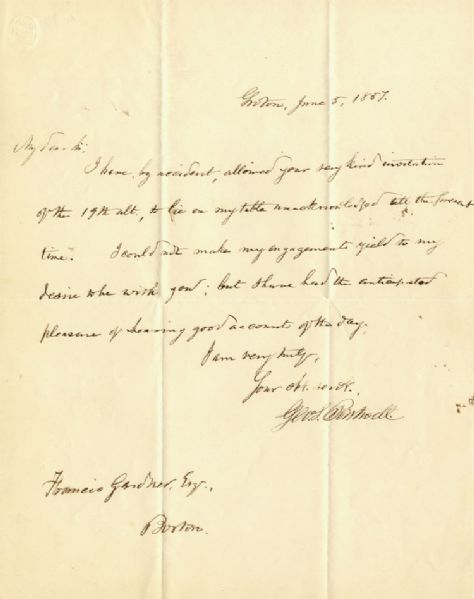 Groton, June 5, 1857.
My dear Sir,
I have, by accident, allowed your very kind invitation
of the 19th ult, to lie on my table unacknowledged till the present
time. I could not make my engagements yield to my
desire to be with you; but I have had the anticipated
pleasure of hearing good accounts of the day.
I am very truly,
Your obt. servt.
Geo. S. Boutwell
Francis Gardner, Esq.,
Boston.